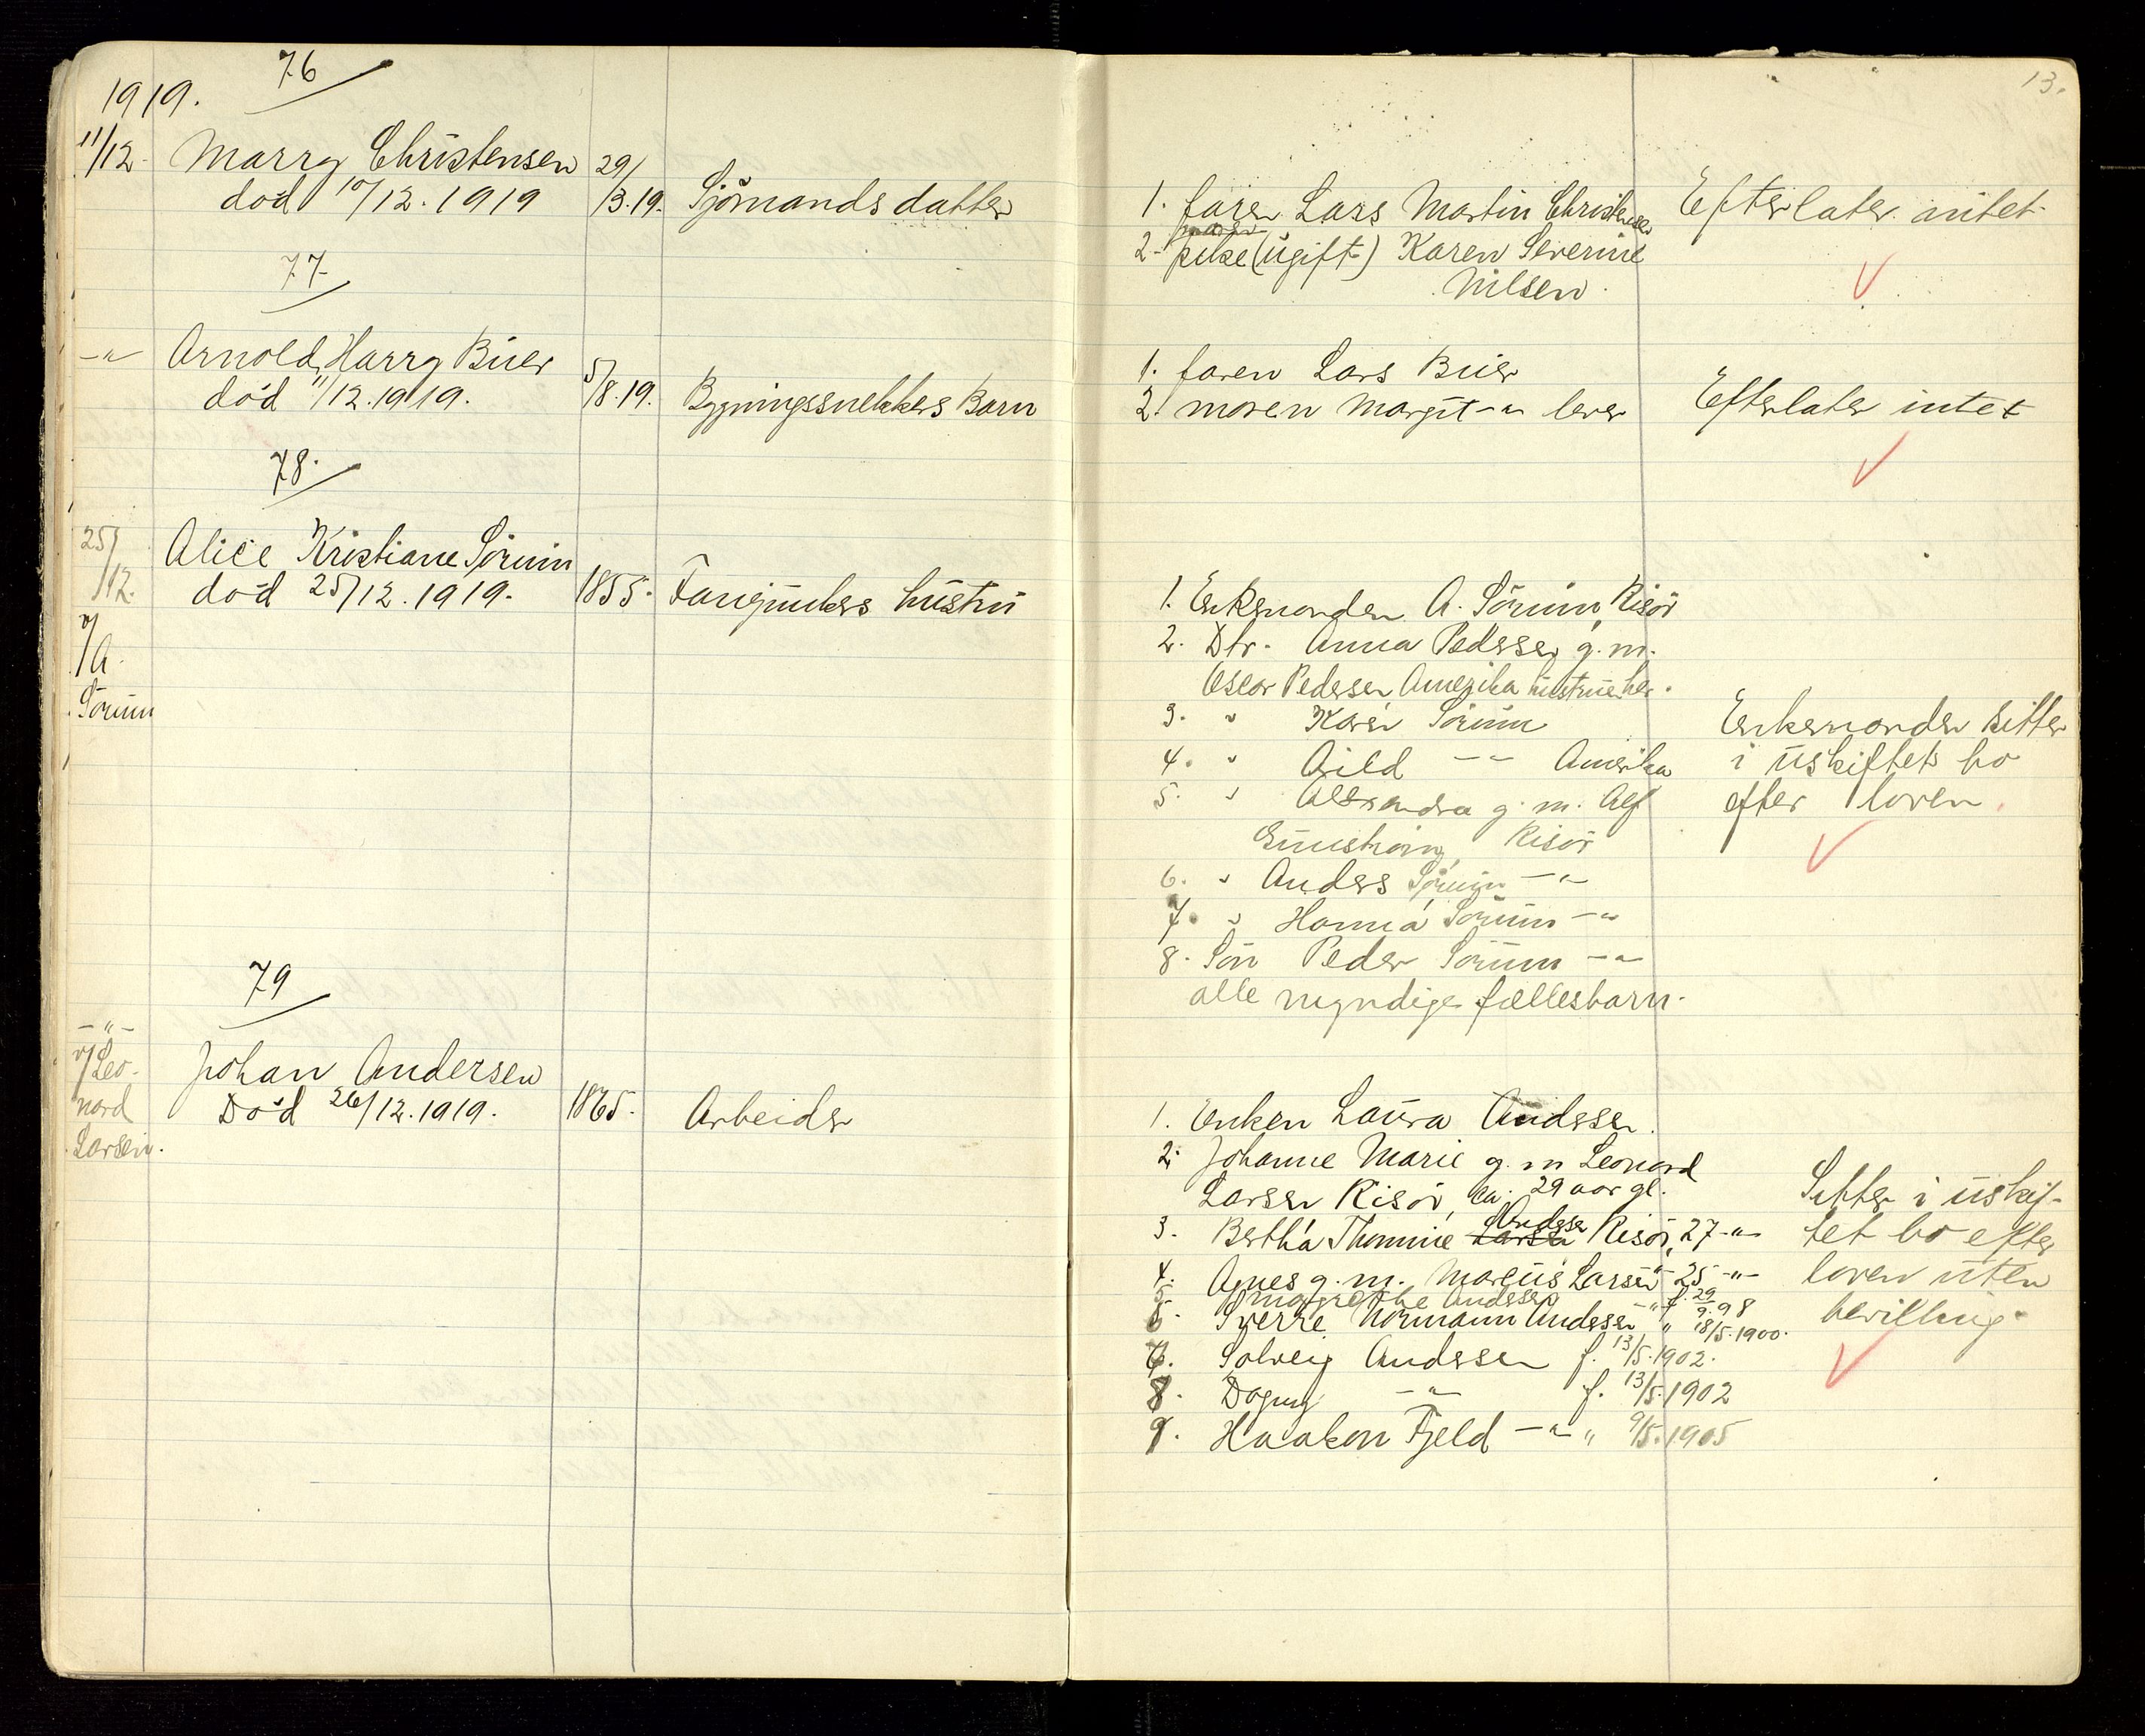 13.
1919.
76
11/12- Marry Christensen 29/
død 10/12. 1919 /3.19. Sjømands datter
1. faren Lars Martin Christensen Efterlater intet
moren
2- pike (ugift) Karen Severine
Nilsen.
77
-"- Arnold Harry Buer 5/
død 11/12.1919. /8.19. Bygningssnekkers Barn
1. faren Lars Buer
2. moren Margit -"- lever Efterlater intet
78.
25/ Alice Kristiane Sørum
/12. død 25/12.1919. 1855. hustru
v/
A.
Sørum
1. Enkemanden A. Sørum, Risør
2. Dtr. Anna Pedersen g. m.
Oscar Pedersen Amerika hustrue her.
3. " Karen Sørum Enkemanden sitter
4. " -"- Amerika i uskiftet bo
5. " Alexandra g. m. Alf efter loven.
Risør
6. " Anders Sørum -"-
7. " Hanna Sørum -"-
8. Søn Peder Sørum -"-
alle myndige fællesbarn.
79
-"-
v/Leo- Johan Andersen
nard Død 26/12.1919. 1865. Arbeider
Larsen.
1. Enken Laura Andersen.
2. Johanne Marie g. m Leonard
Larsen Risør, ca. 29 aar gl. Sitter i uskif-
Andersen
3. Bertha Thomine Larsen Risør, 27 -"- tet bo efter
4. Agnes g. m. Marcus Larsen -"- 25 -"- loven uten
5. Margrethe Andersen -"- f. 29/9.98
6. Sverre Normann Andersen " 18/5.1900. bevilling.
7. Solveig Andersen f. 13/5.1902.
8. Dagny -"- f. 13/5.1902
9. Haakon Fjeld -"- " 9/5.1905